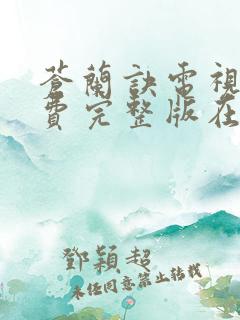 蒼蘭訣電視
費完整版在
鄧穎超
未經同意禁止轉載